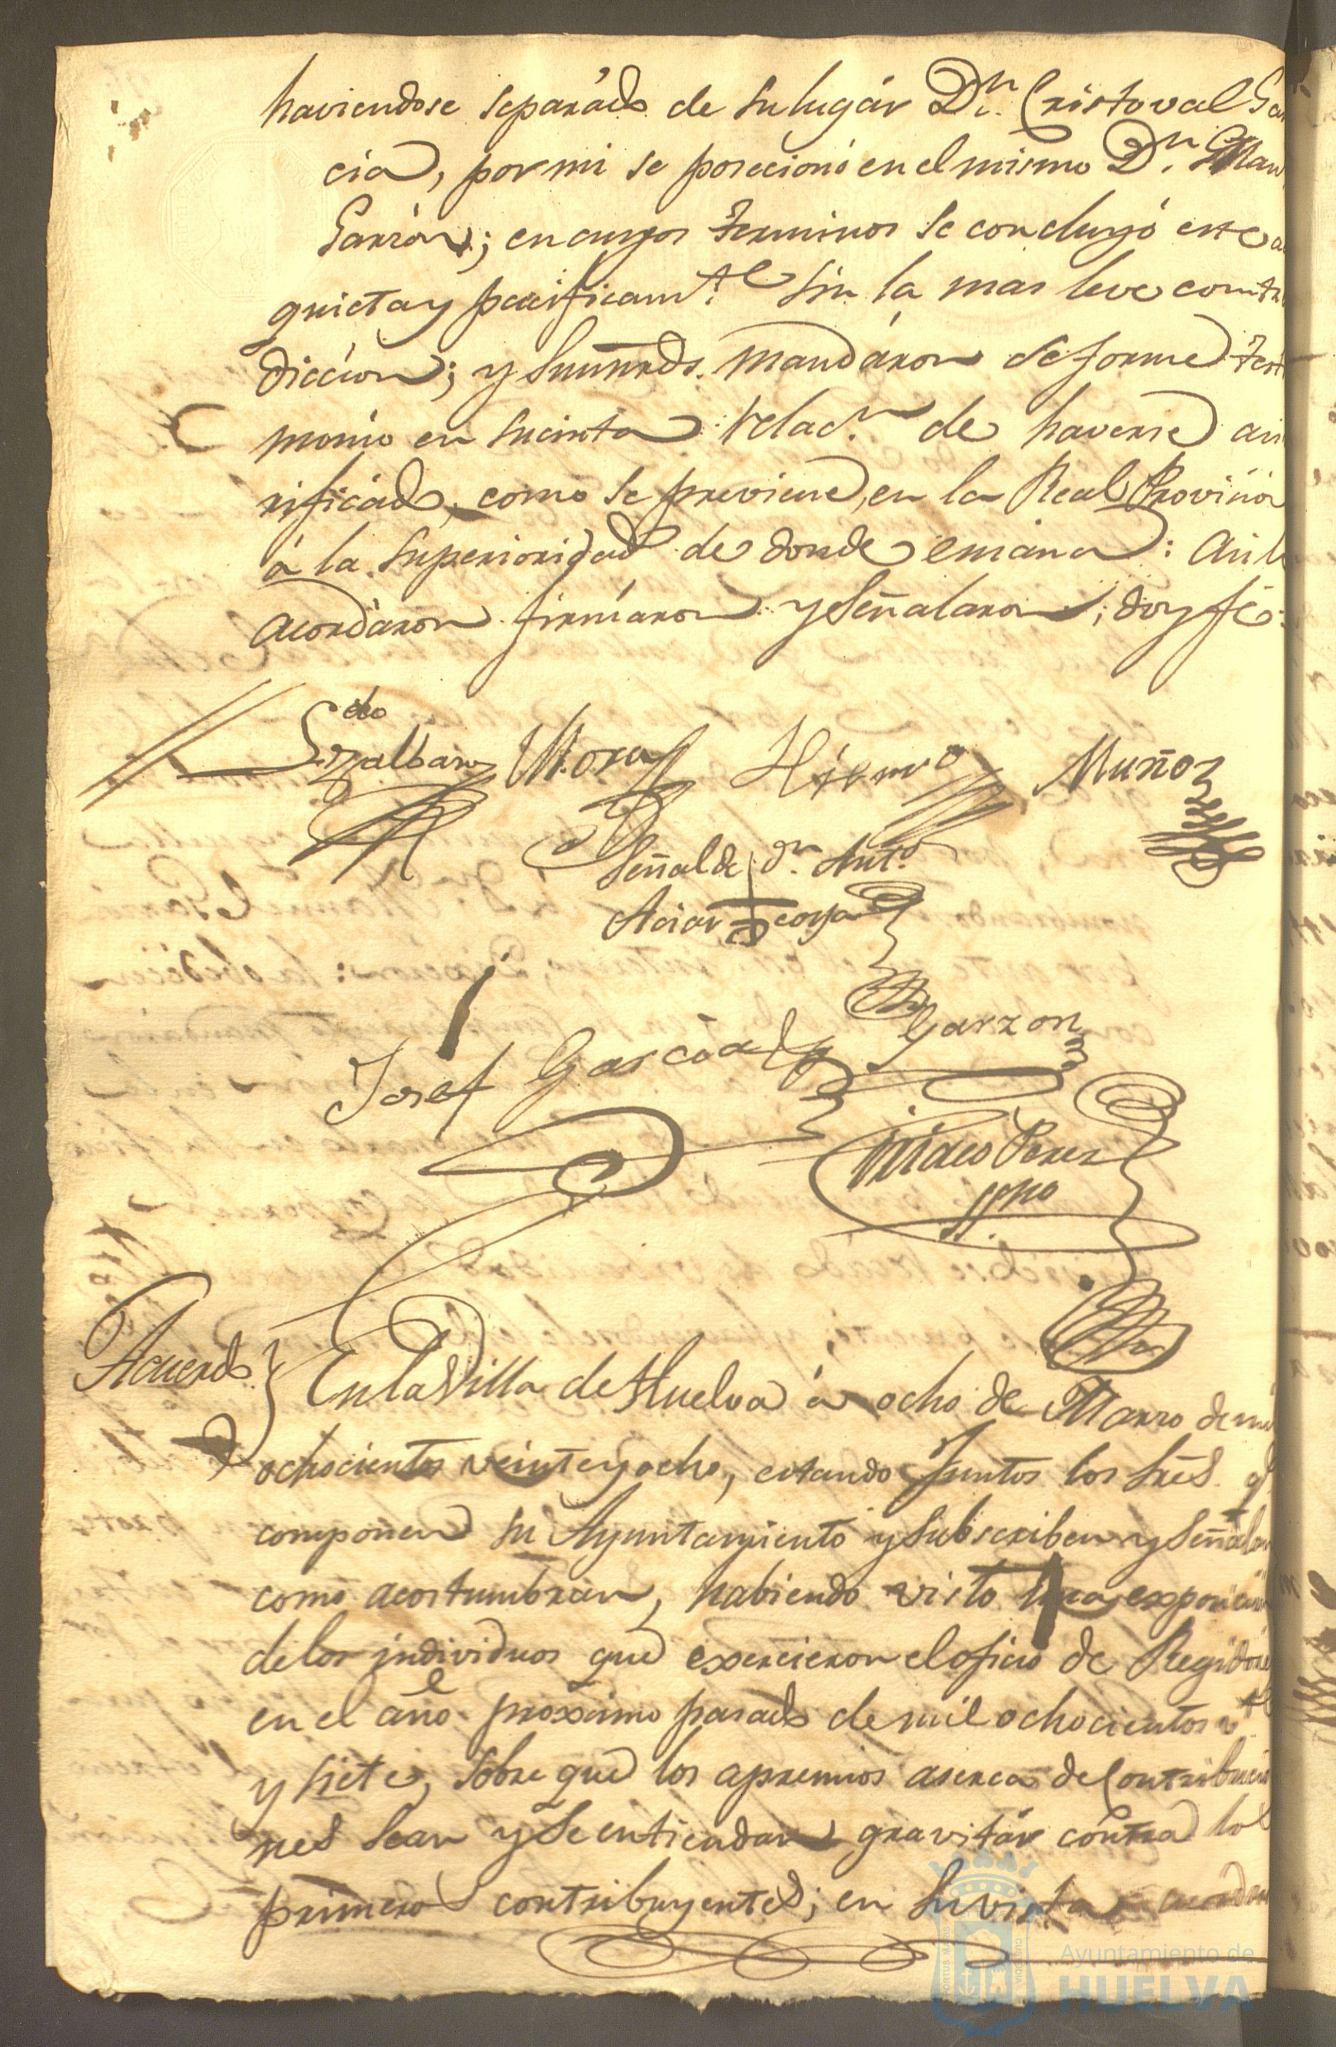 haviendose separádo de su lugár Dn. Cristoval Gar
cia, por mi se posecionó en el mismo Dn. Man
Garzón; en cuyos terminos se concluyó este a
quieta y pacificamte. sin la mas leve contra
diccion; y sus mrds. mandáron se forme testi
monio en sucinta relacn. de haverse asi
rificado, como se previene, en la Real Provision
á la superioridad de donde emana: Asi lo
acordáron firmáron y señalaron; doy fé.
Muñoz
Señal de dn. Anto.
Garzon
Josef Garcia
Mateo Perez
ssno
Acuerdo
En la Villa de Huelva á ocho de Marzo de mil
ochocientos veinte y ocho, estando Juntos los Sres. q
componen su Ayuntamiento y subscriben y señalan
como acostumbran, habiendo visto una exposicion
de los individuos que exercieron el oficio de Regidores
en el año próximo pasado de mil ochocientos vte
y siete, sobre que los apremios aserca de Contribucio
nes sean y se entiendan gravitár contra los
primeros contribuyentes; en su vista acordaron
Ayuntamiento de
HUELVA